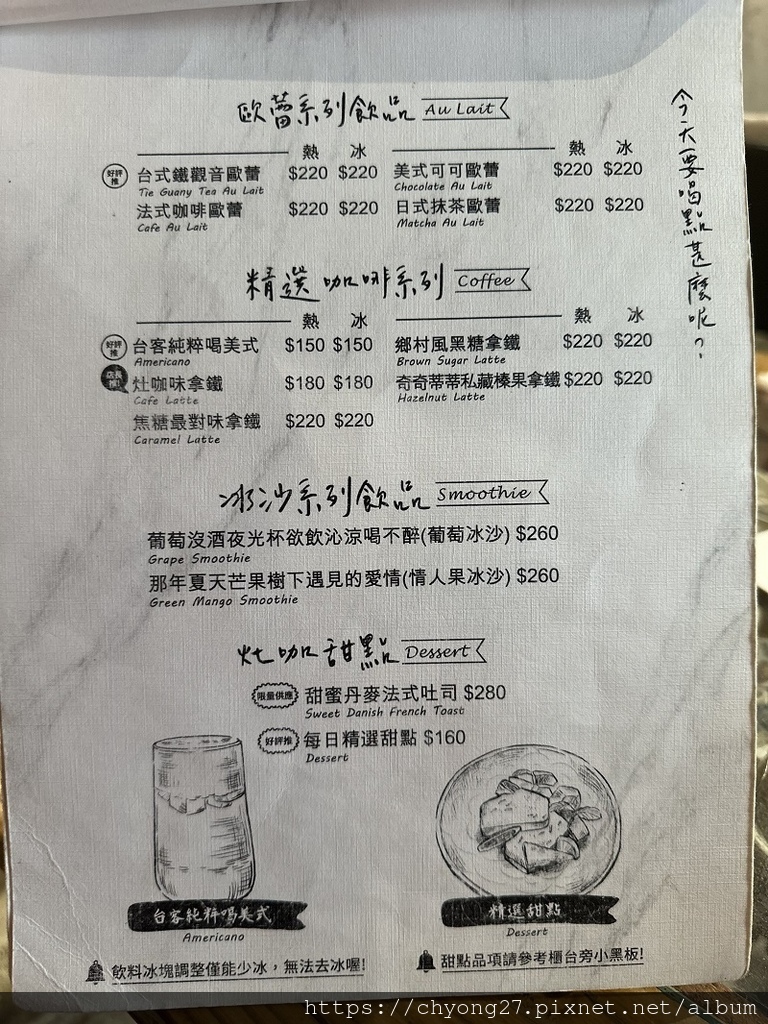 歐蕾系列飲品 Au Lait
熱 冰
好評推 台式鐵觀音歐蕾 $220 $220
Tie Guany Tea Au Lait
法式咖啡歐蕾 $220 $220
Cafe Au Lait
熱 冰
美式可可歐蕾 $220 $220
Chocolate Au Lait
日式抹茶歐蕾 $220 $220
Matcha Au Lait
今天要喝點甚麼呢?
精選咖啡系列 Coffee
熱 冰
好評推 台客純粹喝美式 $150 $150
Americano
灶咖味拿鐵 $180 $180
Cafe Latte
焦糖最對味拿鐵 $220 $220
Caramel Latte
熱 冰
鄉村風黑糖拿鐵 $220 $220
Brown Sugar Latte
奇奇蒂蒂私藏榛果拿鐵 $220 $220
Hazelnut Latte
冰沙系列飲品 Smoothie
葡萄沒酒夜光杯欲飲沁涼喝不醉(葡萄冰沙) $260
Grape Smoothie
那年夏天芒果樹下遇見的愛情(情人果冰沙) $260
Green Mango Smoothie
灶咖甜點 Dessert
限量供應 甜蜜丹麥法式吐司 $280
Sweet Danish French Toast
好評推 每日精選甜點 $160
Dessert
台客純粹喝美式
Americano
精選甜點
Dessert
飲料冰塊調整僅能少冰，無法去冰喔!
甜點品項請參考櫃台旁小黑板!
https://chyong27.pixnet.net/album